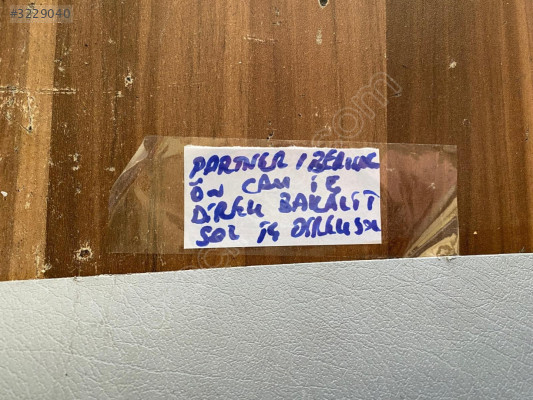 #3229040
PARTNER / BERLİNGO
ÖN CAM İÇ
DİREK BAKALİT
SOL İÇ DİREK